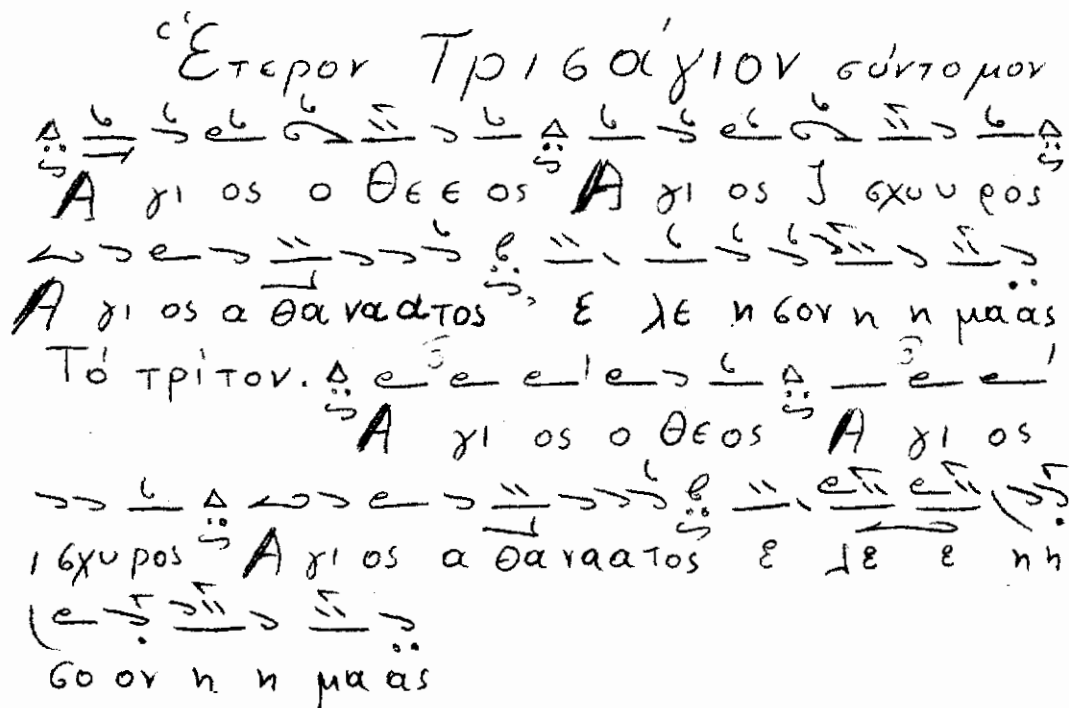 Ἕτερον Τρισάγιον σύντομον
Α γι ος ο Θε ε ος Α γι ος Ι σχυ υ ρος
Α γι ος α θα να α τος, ε λε η σον η η μα ας
Τό τρίτον.
Α γι ος ο Θε ος Α γι ος
ι σχυ ρος Α γι ος α θα να α τος ε λε ε η η
σο ον η η μα ας